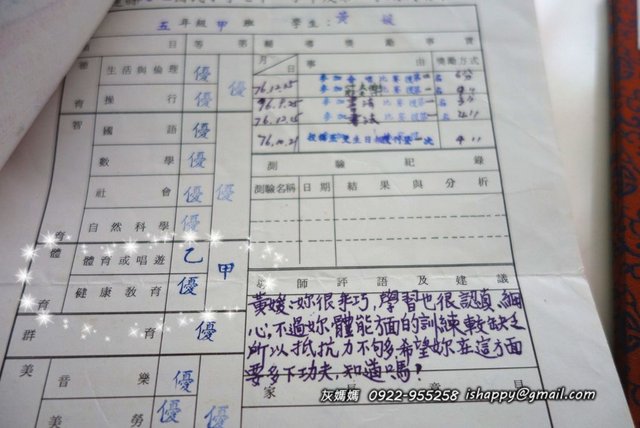 五年級甲班 學生：黃媛
項目 等第 輔導獎勵事實
月 日 事由 獎勵方式
德育 生活與倫理 優 優
操行 優
76.12.25 參加 比賽 名
76.12.15 參加書法
76.10.21
智育 國語 優 優
數學 優
社會 優
自然科學 優
測驗紀錄
測驗名稱 日期 結果與分析
體育 體育或唱遊 乙 甲
健康教育 優
群育 優
美 音樂 優 優
美勞 優
老師評語及建議
黃媛：妳很乖巧，學習也很認真、細
心，不過妳體能方面的訓練較缺乏
所以抵抗力不夠多希望妳在這方面
要多下功夫，知道嗎？
家長意見
灰媽媽 0922-955258 ishappy@gmail.com